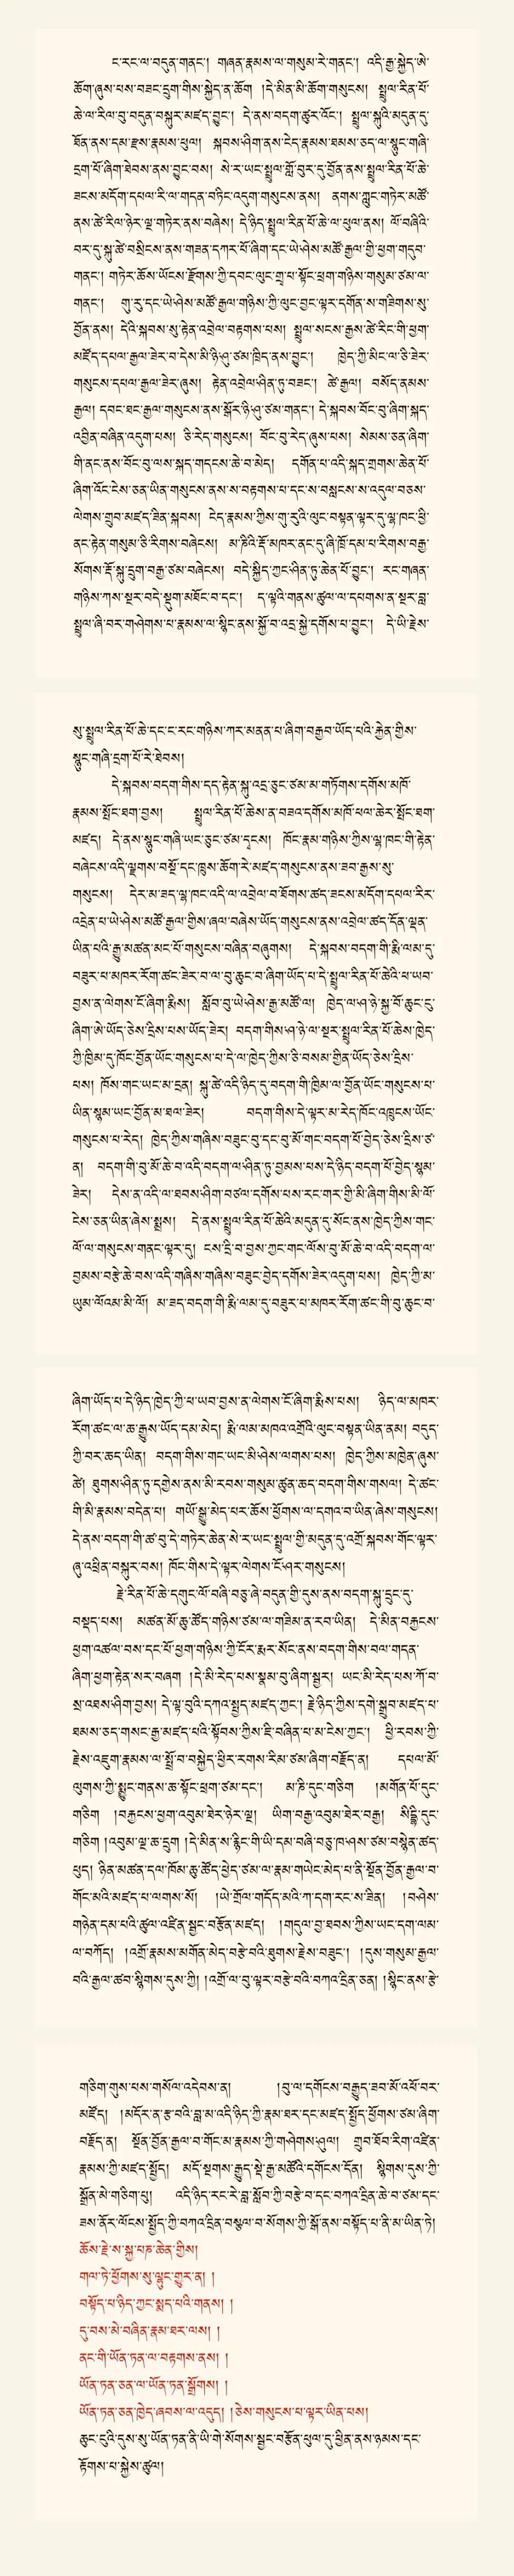 ང་རང་ལ་བདུན་གནང་། གཞན་རྣམས་ལ་གསུམ་རེ་གནང་། འདི་རྒྱ་སྐྱེད་ཨེ་
ཆོག་ཞུས་པས་བཟང་དྲུག་གིས་སྐྱེད་ན་ཆོག །དེ་མིན་མི་ཆོག་གསུངས། སྤྲུལ་རིན་པོ་
ཆེ་ལ་རིལ་བུ་བདུན་བསྐུར་མཛད་བྱུང་། དེ་ནས་བདག་ཚུར་འོང་། སྤྲུལ་སྐུའི་མདུན་དུ་
ཐོན་ནས་དམ་རྫས་རྣམས་ཕུལ། སྐབས་ཤིག་ནས་ངེད་རྣམས་ཐམས་ཅད་ལ་སྙུང་གཞི་
དྲག་པོ་ཞིག་ཐེབས་ནས་བྱུང་བས། སེ་ར་ཡང་སྤྲུལ་གློ་བུར་དུ་བྱོན་ནས་སྤྲུལ་རིན་པོ་ཆེ་
ཟངས་མདོག་དཔལ་རི་ལ་གདན་བཏིང་འདུག་གསུངས་ནས། ནགས་ཀླུང་གཏེར་མཚོ་
ནས་ཚེ་རིལ་ཉེར་ལྔ་གཏེར་ནས་བཞེས། དེ་ཉིད་སྤྲུལ་རིན་པོ་ཆེ་ལ་ཕུལ་ནས། ལོ་བཞིའི་
བར་དུ་སྐུ་ཚེ་བསྲིངས་ནས་གཟན་དཀར་པོ་ཞིག་དང་ཡེ་ཤེས་མཚོ་རྒྱལ་གྱི་ཕྱག་གདུབ་
གནང་། གཏེར་ཆོས་ཡོངས་རྫོགས་ཀྱི་དབང་ལུང་གྲྭ་པ་སྟོང་ཕྲག་གཉིས་གསུམ་ཙམ་ལ་
གནང་། གུ་རུ་དང་ཡེ་ཤེས་མཚོ་རྒྱལ་གཉིས་ཀྱི་ལུང་བྱང་ལྟར་དགོན་ས་གཟིགས་སུ་
བྱོན་ནས། དེའི་སྐབས་སུ་རྟེན་འབྲེལ་བརྟགས་པས། སྤྲུལ་སངས་རྒྱས་ཚེ་རིང་གི་ཕྱག་
མཛོད་དཔལ་རྒྱལ་ཟེར་བ་དེས་མི་ཉི་ཤུ་ཙམ་ཁྲིད་ནས་བྱུང་། ཁྱེད་ཀྱི་མིང་ལ་ཅི་ཟེར་
གསུངས་དཔལ་རྒྱལ་ཟེར་ཞུས། རྟེན་འབྲེལ་ཤིན་ཏུ་བཟང་། ཚེ་རྒྱལ། བསོད་ནམས་
རྒྱལ། དབང་ཐང་རྒྱལ་གསུངས་ནས་སྒོར་ཉི་ཤུ་ཙམ་གནང་། དེ་སྐབས་བོང་བུ་ཞིག་སྐད་
འབྱིན་བཞིན་འདུག་པས། ཅི་རེད་གསུངས། བོང་བུ་རེད་ཞུས་པས། སེམས་ཅན་ཞིག་
གི་ནང་ནས་བོང་བུ་ལས་སྐད་གདངས་ཆེ་བ་མེད། དགོན་པ་འདི་སྐད་གྲགས་ཆེན་པོ་
ཞིག་འོང་ངེས་ཅན་ཡིན་གསུངས་ནས་ས་བརྟགས་པ་དང་ས་བསླངས་ས་འདུལ་བཅས་
ལེགས་གྲུབ་མཛད་ཟིན་སྐབས། ངེད་རྣམས་ཀྱིས་གུ་རུའི་ལུང་བསྟན་ལྟར་དུ་ལྷ་ཁང་ཕྱི་
ནང་རྟེན་གསུམ་ཅི་རིགས་བཞེངས། མ་ཎིའི་རྡོ་མཁར་ནང་དུ་ཞི་ཁྲོ་དམ་པ་རིགས་བརྒྱ་
སོགས་རྡོ་སྐུ་དྲུག་བརྒྱ་ཙམ་བཞེངས། བདེ་སྐྱིད་ཀྱང་ཤིན་ཏུ་ཆེན་པོ་བྱུང་། རང་གཞན་
གཉིས་ཀས་སྔར་བདེ་སྡུག་མཐོང་བ་དང་། ད་ལྟའི་གནས་ཚུལ་ལ་དཔགས་ན་སྔར་བླ་
སྤྲུལ་ཞི་བར་གཤེགས་པ་རྣམས་ལ་སྙིང་ནས་སྐྱོ་བ་འདྲ་སྐྱེ་དགོས་པ་བྱུང་། དེ་ཡི་རྗེས་
སུ་སྤྲུལ་རིན་པོ་ཆེ་དང་ང་རང་གཉིས་ཀར་མནན་པ་ཞིག་བརྒྱབ་ཡོད་པའི་རྐྱེན་གྱིས་
སྙུང་གཞི་དྲག་པོ་རེ་ཐེབས།
དེ་སྐབས་བདག་གིས་དད་རྟེན་སྐུ་འདྲ་ཅུང་ཙམ་མ་གཏོགས་དགོས་མཁོ་
རྣམས་སྤོང་ཐག་བྱས། སྤྲུལ་རིན་པོ་ཆེས་ན་བཟའ་དགོས་མཁོ་ཕལ་ཆེར་སྤོང་ཐག་
མཛད། དེ་ནས་སྙུང་གཞི་ཡང་ཅུང་ཙམ་དྭངས། ཁོང་རྣམ་གཉིས་ཀྱིས་ལྷ་ཁང་གི་རྟེན་
བཞེངས་འདི་ལྕགས་བསྔོ་དང་ཁྲུས་ཆོག་རེ་མཛད་གསུངས་ནས་ཟབ་རྒྱས་སུ་
གསུངས། དེར་མ་ཟད་ལྷ་ཁང་འདི་ལ་འབྲེལ་བ་ཐོགས་ཚད་ཟངས་མདོག་དཔལ་རིར་
འདྲེན་པ་ཡེ་ཤེས་མཚོ་རྒྱལ་གྱིས་ཞལ་བཞེས་ཡོད་གསུངས་ནས་འབྲེལ་ཚད་དོན་ལྡན་
ཡིན་པའི་རྒྱུ་མཚན་མང་པོ་གསུངས་བཞིན་བཞུགས། དེ་སྐབས་བདག་གི་རྨི་ལམ་དུ་
བཟུར་པ་མཁར་རོག་ཚང་ཟེར་བ་ལ་བུ་ཆུང་བ་ཞིག་ཡོད་པ་དེ་སྤྲུལ་རིན་པོ་ཆེའི་ཕ་ཡབ་
བྱས་ན་ལེགས་ངོ་ཞིག་རྨིས། སློབ་བུ་ཡེ་ཤེས་རྒྱ་མཚོ་ལ། ཁྱེད་ལ་ཤ་ཉེ་སྐྱ་བོ་ཆུང་ངུ་
ཞིག་ཨེ་ཡོད་ཅེས་དྲིས་པས་ཡོད་ཟེར། བདག་གིས་ཤ་ཉེ་ལ་སྔར་སྤྲུལ་རིན་པོ་ཆེས་ཁྱེད་
ཀྱི་ཁྱིམ་དུ་ཁོང་བྱོན་ཡོང་གསུངས་པ་དེ་ལ་ཁྱེད་ཀྱིས་ཅི་བསམ་གྱིན་ཡོད་ཅེས་དྲིས་
པས། ཁོས་གང་ཡང་མ་དྲན། སྐུ་ཚེ་འདི་ཉིད་དུ་བདག་གི་ཁྱིམ་ལ་བྱོན་ཡོང་གསུངས་པ་
ཡིན་སྙམ་ཡང་བྱོན་མ་ཐལ་ཟེར། བདག་གིས་དེ་ལྟར་མ་རེད་ཁོང་འཁྲུངས་ཡོང་
གསུངས་པ་རེད། ཁྱེད་ཀྱིས་གཞིས་བཟུང་བུ་དང་བུ་མོ་གང་བདག་པོ་བྱེད་ཅེས་དྲིས་ཙ་
ན། བདག་གི་བུ་མོ་ཆེ་བ་འདི་བདག་ལ་ཤིན་ཏུ་བྱམས་པས་དེ་ཉིད་བདག་པོ་བྱེད་སྙམ་
ཟེར། དེས་ན་འདི་ལ་ཐབས་ཤིག་བཙལ་དགོས་པས་རང་གར་གྱི་མི་ཞིག་གིས་མི་ལོ་
ངེས་ཅན་ཡིན་ཞེས་སྨྲས། དེ་ནས་སྤྲུལ་རིན་པོ་ཆེའི་མདུན་དུ་སོང་ནས་ཁྱེད་ཀྱིས་གང་
ལོ་ལ་གསུངས་གནང་ལྟར་དུ། ངས་དྲི་བ་བྱས་ཀྱང་གང་ལོས་བུ་མོ་ཆེ་བ་འདི་བདག་ལ་
བྱམས་བརྩེ་ཆེ་བས་འདི་གཞིས་གཞིས་བཟུང་བྱེད་དགོས་ཟེར་འདུག་པས། ཁྱེད་ཀྱི་མ་
ཡུམ་ལོའམ་མི་ལོ། མ་ཟད་བདག་གི་རྨི་ལམ་དུ་བཟུར་པ་མཁར་རོག་ཚང་གི་བུ་ཆུང་བ་
ཞིག་ཡོད་པ་དེ་ཉིད་ཁྱེད་ཀྱི་ཕ་ཡབ་བྱས་ན་ལེགས་ངོ་ཞིག་རྨིས་པས། ཉིད་ལ་མཁར་
རོག་ཚང་ལ་ཆ་རྒྱུས་ཡོད་དམ་མེད། རྨི་ལམ་མཁའ་འགྲོའི་ལུང་བསྟན་ཡིན་ནམ། བདུད་
ཀྱི་བར་ཆད་ཡིན། བདག་གིས་གང་ཡང་མི་ཤེས་ལགས་པས། ཁྱེད་ཀྱིས་མཁྱེན་ཞུས་
ཚེ། ཐུགས་ཤིན་ཏུ་དགྱེས་ནས་མི་རབས་གསུམ་ཚུན་ཆད་བདག་གིས་གསལ། དེ་ཚང་
གི་མི་རྣམས་བདེན་པ། གཡོ་སྒྱུ་མེད་པར་ཆོས་ཕྱོགས་ལ་དགའ་བ་ཡིན་ཞེས་གསུངས།
དེ་ནས་བདག་གི་ཚ་བུ་དེ་གཏེར་ཆེན་སེ་ར་ཡང་སྤྲུལ་གྱི་མདུན་དུ་འགྲོ་སྐབས་གོང་ལྟར་
ཞུ་འཕྲིན་བསྐུར་བས། ཁོང་གིས་དེ་ལྟར་ལེགས་ངོ་ཤར་གསུངས།
རྗེ་རིན་པོ་ཆེ་དགུང་ལོ་བཞི་བཅུ་ཞེ་བདུན་གྱི་དུས་ནས་བདག་སྐུ་དྲུང་དུ་
བསྡད་པས། མཚན་མོ་ཆུ་ཚོད་གཉིས་ཙམ་ལ་གཟིམ་ན་རབ་ཡིན། དེ་མིན་བརྐྱངས་
ཕྱག་འཚལ་བས་དང་པོ་ཕྱག་གཉིས་ཀྱི་ངོར་རྨར་སོང་ནས་བདག་གིས་བལ་གདན་
ཞིག་ཕྱག་རྟེན་སར་བཞག །དེ་མི་རེད་པས་སྣམ་བུ་ཞིག་སྦྱར། ཡང་མི་རེད་པས་ཀོ་བ་
སྲ་འཐས་ཤིག་བྱས། དེ་ལྟ་བུའི་དཀའ་སྤྱད་མཛད་ཀྱང་། རྗེ་ཉིད་ཀྱིས་དགེ་སྒྲུབ་མཛད་པ་
ཐམས་ཅད་གསང་རྒྱ་མཛད་པའི་སྟོབས་ཀྱིས་ཇི་བཞིན་པ་མ་ངེས་ཀྱང་། ཕྱི་རབས་ཀྱི་
རྗེས་འཇུག་རྣམས་ལ་སྤྲོ་བ་བསྐྱེད་ཕྱིར་རགས་རིམ་ཙམ་ཞིག་བརྗོད་ན། དཔལ་མོ་
ལུགས་ཀྱི་སྨྱུང་གནས་ཆ་སྟོང་ཕྲག་ཙམ་དང་། མ་ཎི་དུང་གཅིག །མགོན་པོ་དུང་
གཅིག །བརྐྱངས་ཕྱག་འབུམ་ཐེར་ཉེར་ལྔ། ཡིག་བརྒྱ་འབུམ་ཐེར་བརྒྱ། སིདྡྷི་དུང་
གཅིག །འབུམ་ལྔ་ཆ་དྲུག །དེ་མིན་ས་རྙིང་གི་ཡི་དམ་བཞི་བཅུ་ཁ་ཤས་ཙམ་བསྙེན་ཚད་
ཕུད། ཉིན་མཚན་དལ་ཁོམ་ཆུ་ཚོད་ཕྱེད་ཙམ་ལ་རྣམ་གཡེང་མེད་པ་ནི་སྔོན་བྱོན་རྒྱལ་བ་
གོང་མའི་མཛད་པ་ལགས་སོ། །ཡེ་གྲོལ་གདོད་མའི་ཀ་དག་རང་ས་ཟིན། །བཤེས་
གཉེན་དམ་པའི་ཚུལ་འཛིན་སྦྱང་བརྩོན་མཛད། །གདུལ་བྱ་ཐབས་ཀྱིས་ཡང་དག་ལམ་
ལ་བཀོད། །འགྲོ་རྣམས་མགོན་མེད་བརྩེ་བའི་ཐུགས་རྗེས་བཟུང་། །དུས་གསུམ་རྒྱལ་
བའི་རྒྱལ་ཚབ་སྙིགས་དུས་ཀྱི། །འགྲོ་ལ་བུ་ལྟར་བརྩེ་བའི་བཀའ་དྲིན་ཅན། །སྙིང་ནས་རྩེ་
གཅིག་གུས་པས་གསོལ་འདེབས་ན། །བུ་ལ་དགོངས་བརྒྱུད་ཟབ་མོ་འཕོ་བར་
མཛོད། །མདོར་ན་རྩ་བའི་བླ་མ་འདི་ཉིད་ཀྱི་རྣམ་ཐར་དང་མཛད་སྤྱོད་ཕྱོགས་ཙམ་ཞིག་
བརྗོད་ན། སྔོན་བྱོན་རྒྱལ་བ་གོང་མ་རྣམས་ཀྱི་གཤེགས་ཤུལ། གྲུབ་ཐོབ་རིག་འཛིན་
རྣམས་ཀྱི་མཛད་སྤྱོད། མདོ་སྔགས་རྒྱུད་སྡེ་རྒྱ་མཚོའི་དགོངས་དོན། སྙིགས་དུས་ཀྱི་
སྒྲོན་མེ་གཅིག་པུ། འདི་ཉིད་རང་རེ་བླ་སློབ་ཀྱི་བརྩེ་བ་དང་བཀའ་དྲིན་ཆེ་བ་ཙམ་དང་
ཟས་ནོར་ལོངས་སྤྱོད་ཀྱི་བཀའ་དྲིན་བསྐྱལ་བ་སོགས་ཀྱི་སྒོ་ནས་བསྟོད་པ་ནི་མ་ཡིན་ཏེ།
ཆོས་རྗེ་ས་སྐྱ་པཎ་ཆེན་གྱིས།
གལ་ཏེ་ཕྱོགས་སུ་ལྷུང་གྱུར་ན། །
བསྟོད་པ་ཉིད་ཀྱང་སྨད་པའི་གནས། །
དུ་བས་མེ་བཞིན་རྣམ་ཐར་ལས། །
ནང་གི་ཡོན་ཏན་ལ་བརྟགས་ནས། །
ཡོན་ཏན་ཅན་ལ་ཡོན་ཏན་སྒྲོགས། །
ཡོན་ཏན་ཅན་ཁྱེད་ཞབས་ལ་འདུད། །ཅེས་གསུངས་པ་ལྟར་ཡིན་པས།
ཆུང་ངུའི་དུས་སུ་ཡོན་ཏན་ནི་ཡི་གེ་སོགས་སྦྱང་བརྩོན་ཕུལ་དུ་ཕྱིན་ནས་ཉམས་དང་
རྟོགས་པ་སྐྱེས་ཚུལ།